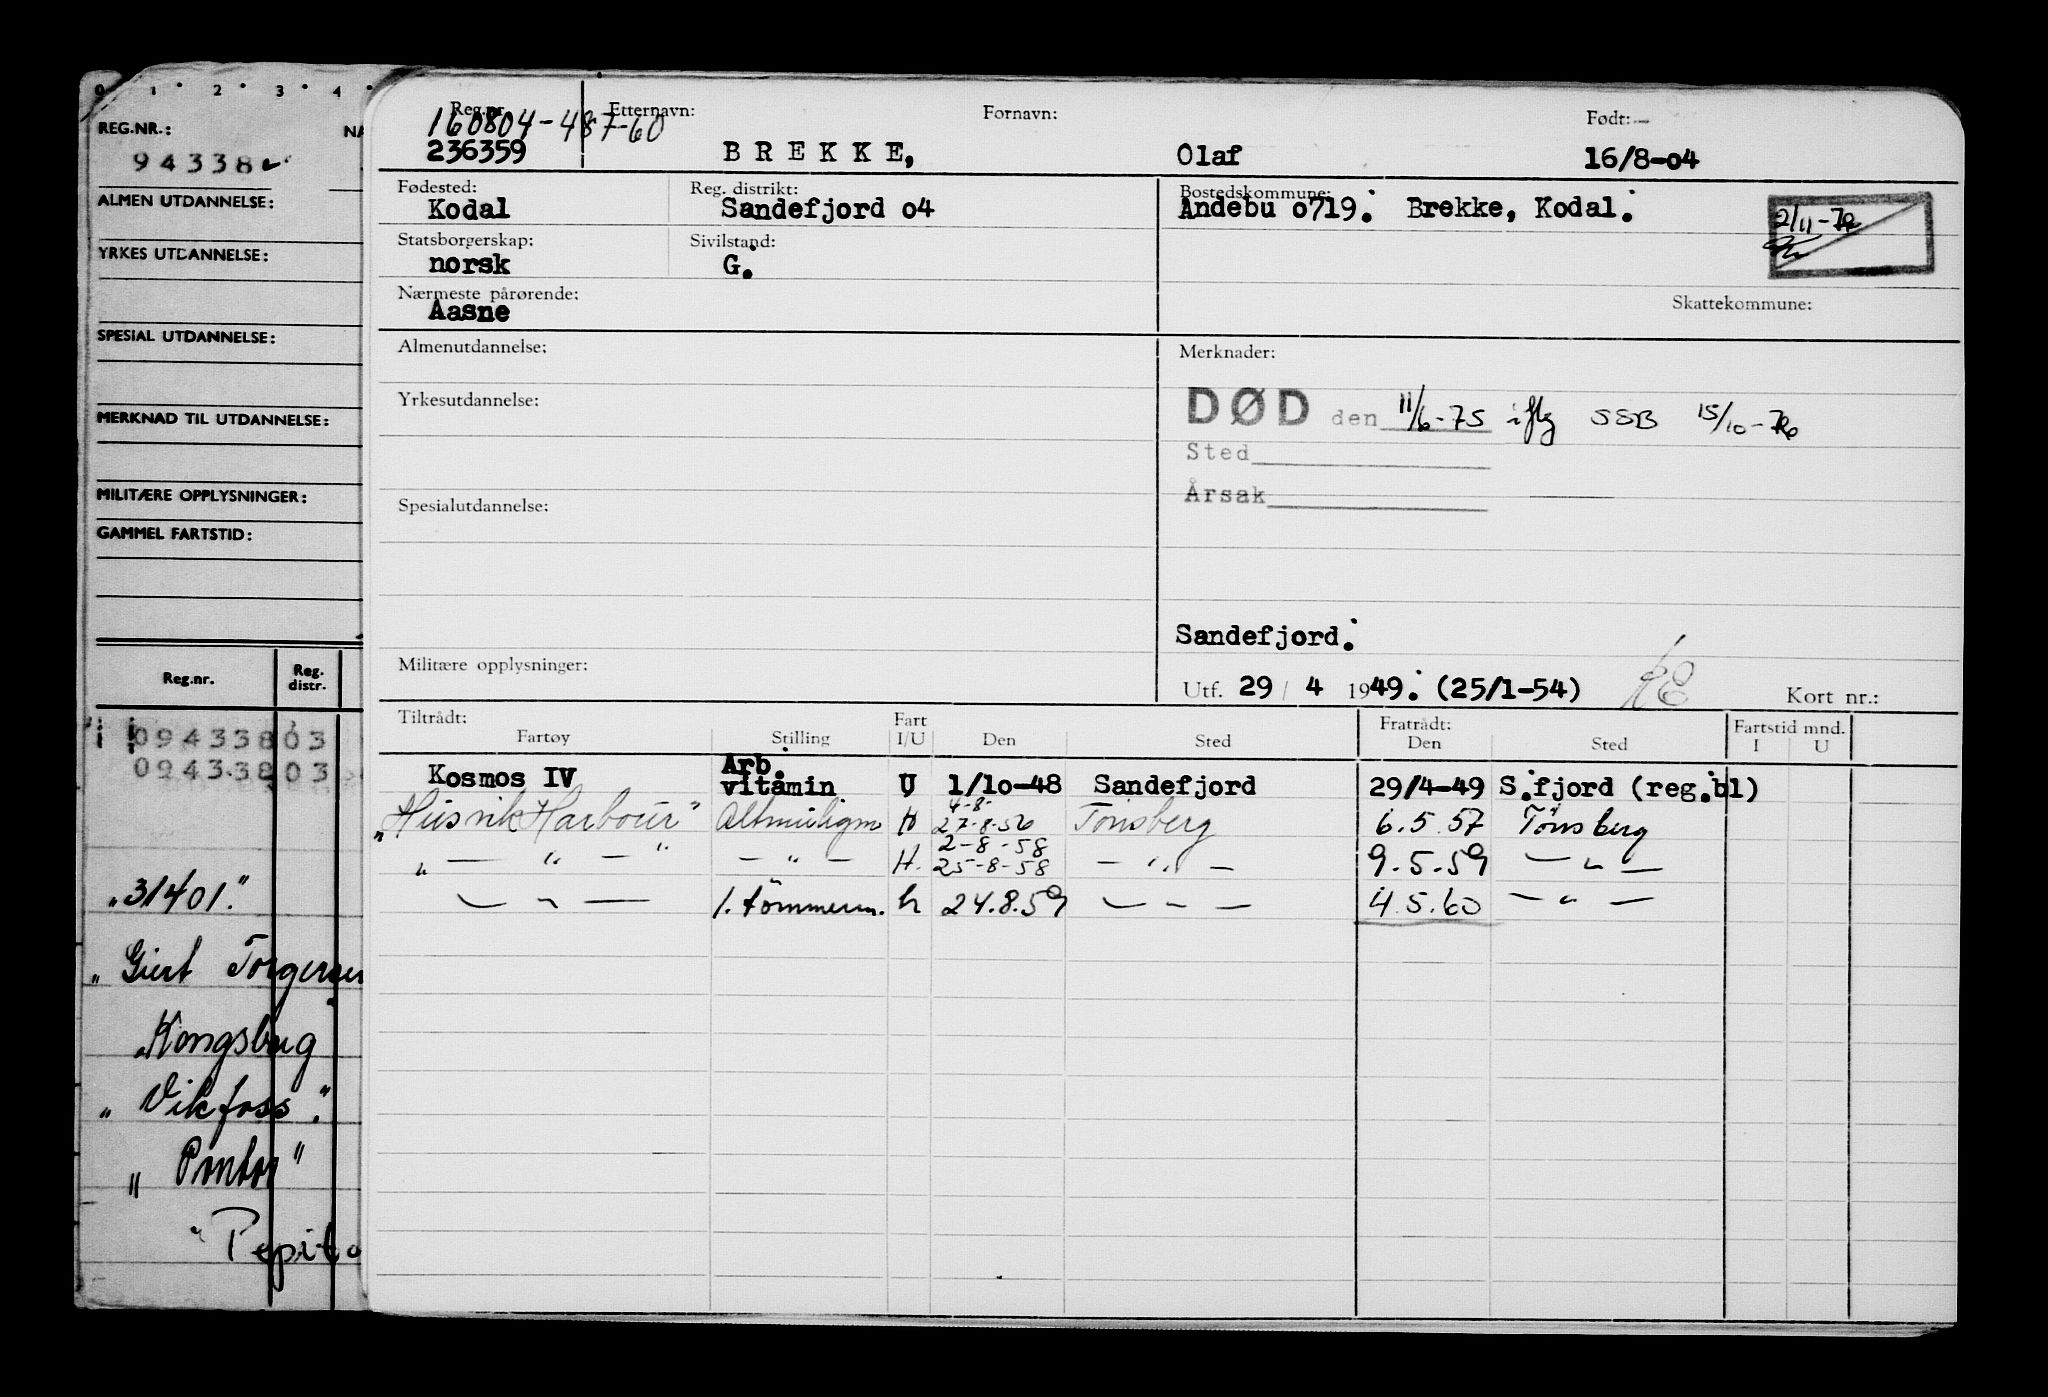 0 1 2 3 4
REG.NR.:
94338
ALMEN UTDANNELSE:
YRKES UTDANNELSE:
SPESIAL UTDANNELSE:
MERKNAD TIL UTDANNELSE:
MILITÆRE OPPLYSNINGER:
GAMMEL FARTSTID:
Reg.nr. Reg. distr.
094338 03
094338 03
„31401."
„Giert Torgersen
„Kongsberg
„Vikfoss."
„Pontos"
"Pepita
Reg.nr. Etternavn: Fornavn: Født:
160804-487-60
236359 BREKKE, Olaf 16/8-04
Fødested: Reg. distrikt: Bostedskommune:
Kodal Sandefjord o4 Andebu o719. Brekke, Kodal.
2/11-76
Statsborgerskap: Sivilstand:
norsk G.
Nærmeste pårørende: Skattekommune:
Aasne
Almenutdannelse: Merknader:
DØD den 11/6-75 iflg SSB 15/10-76
Yrkesutdannelse:
Sted
Årsak
Spesialutdannelse:
Sandefjord.
Militære opplysninger:
Utf. 29/4 1949. (25/1-54) Kort nr.:
Tiltrådt: Fart Fratrådt: Fartstid mnd.
Fartøy Stilling I/U Den Sted Den Sted I U
Kosmos IV Arb. vitamin U 1/10-48 Sandefjord 29/4-49 S.fjord (reg.bl)
„Husvik Harbour" Altmuligm H 4-8- 27-8-56 Tönsberg 6.5.57 Tönsberg
„ — " — " — " — H. 2-8-58 25-8-58 — " — 9.5.59 — " —
— " — 1. tömmerm. h 24.8.59 — " — 4.5.60 — " —